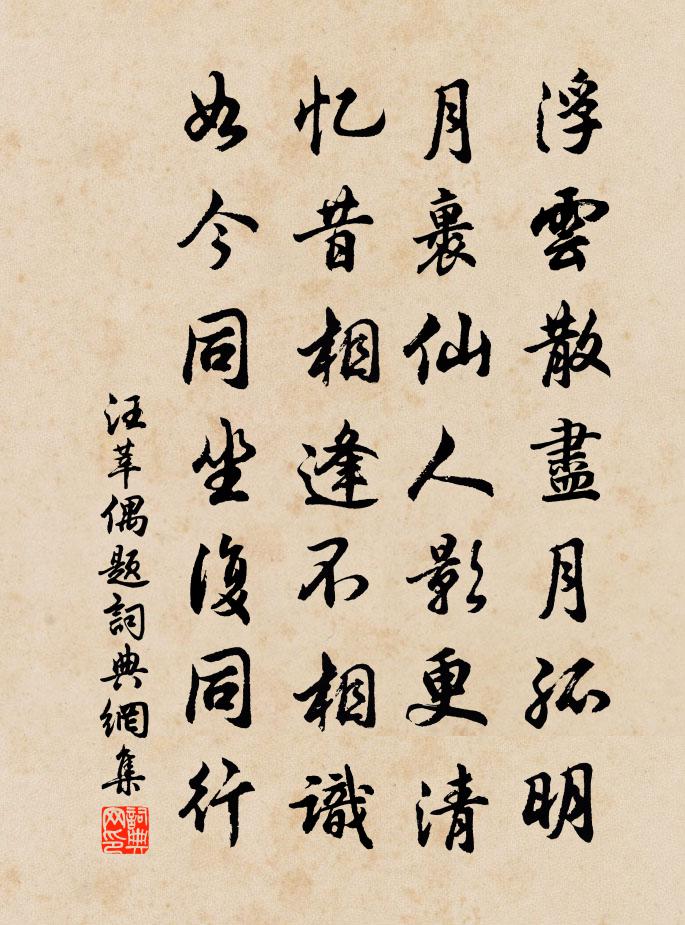 浮雲散盡月孤明
月裏仙人影更清
忆昔相逢不相識
如今同坐復同行
汪莘偶题詞典網集
詞典网印